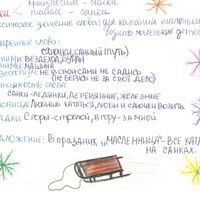 санки
ческое значение слова: для катания маленьких
возить маленьких детей
слова:
САНОЧКИ, САННЫЙ (ПУТЬ)
ВЕЗДЕХОД, БУРАН
МАШИНА
НЕ В СВОИ САНИ НЕ САДИСЬ
(НЕ БЕРИСЬ НЕ ЗА СВОЁ ДЕЛО)
слова:
САНКИ-ЛЕДЯНКИ, ДЕРЕВЯННЫЕ, ЖЕЛЕЗНЫЕ
ЛЮБИШЬ КАТАТЬСЯ, ЛЮБИ И САНОЧКИ ВОЗИТЬ
С ГОРЫ-СТРЕЛОЙ, В ГОРУ-ЗА МНОЙ
В ПРАЗДНИК „МАСЛЕННИЦА"-ВСЕ КАТА
НА САНКАХ.